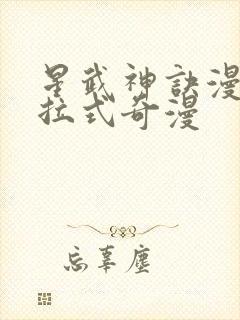 星武神訣漫
拉式奇漫
忘辜塵